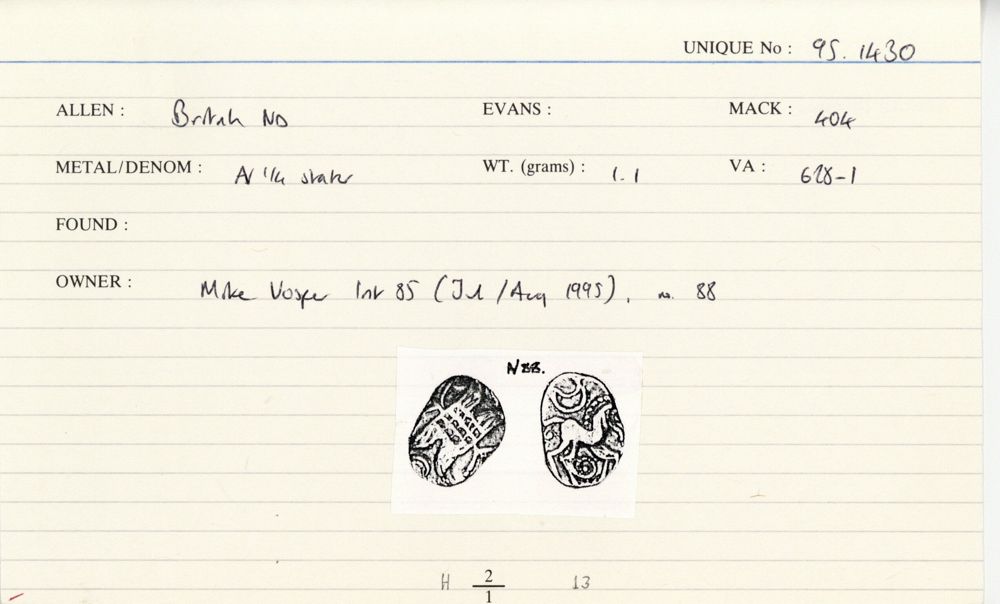 UNIQUE No : 95. 1430
ALLEN : British ND EVANS : MACK : 404
METAL/DENOM : AV 1/4 stater WT. (grams) : 1.1 VA : 628-1
FOUND :
OWNER : Mike Vosper list 85 (Jul/Aug 1995), no. 88
N 88.
H 2/1 13